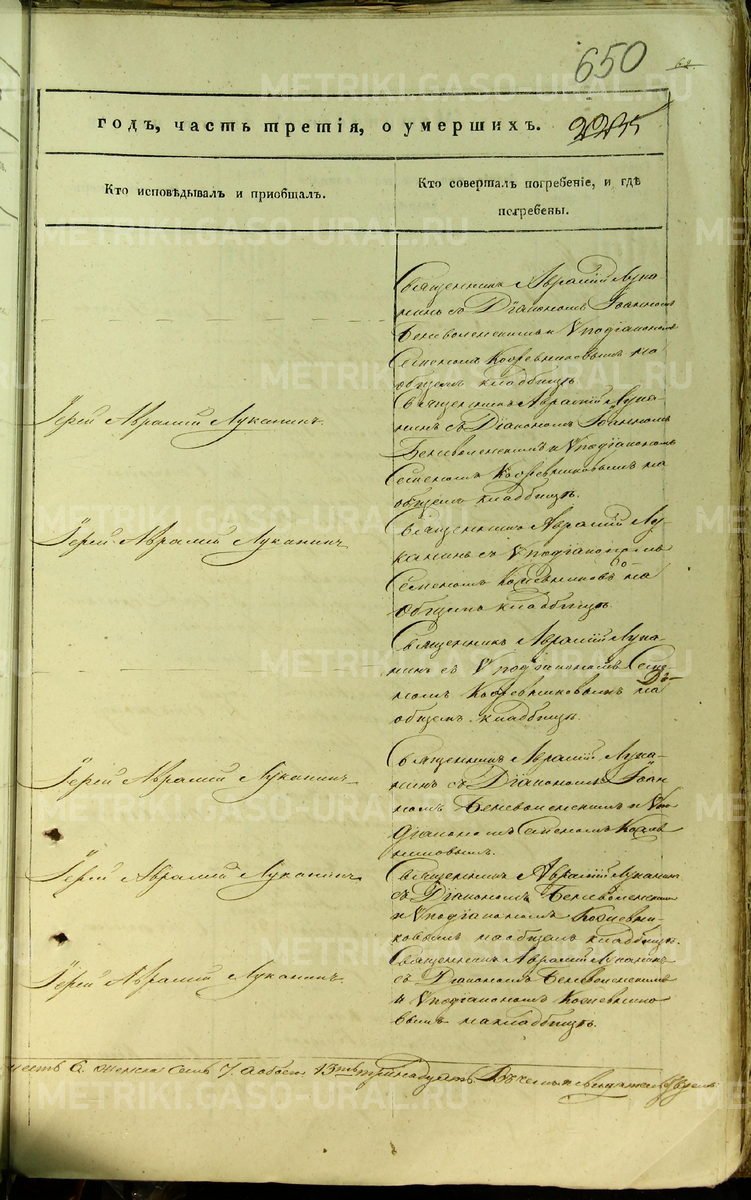 650
годъ, часть третія, о умершихъ. 2235
Кто исповѣдывалъ и приобщалъ.
Кто совершалъ погребеніе, и гдѣ
погребены.
Священникъ Аврамій Лука-
нинъ съ Діакономъ Іоанномъ
Беневоленскимъ и Vподіакономъ
Семеномъ Кожевниковымъ на
общемъ кладбищѣ
Іерей Аврамій Луканинъ
Священникъ Аврамій Лука-
нинъ съ Діакономъ Іоанномъ
Беневоленскимъ и Vподіакономъ
Семеномъ Кожевниковымъ на
общемъ кладбищѣ.
Іерей Аврамій Луканинъ
Священникъ Аврамій Лу-
канинъ съ Vподіакономъ
Семеномъ Кожевниковъ на
общемъ кладбищѣ.
Священникъ Аврамій Лука-
нинъ съ Vподіакономъ Семе-
номъ Кожевниковымъ на
общемъ кладбищѣ.
Іерей Аврамій Луканинъ
Священникъ Аврамій Лука-
нинъ съ Діакономъ Іоан-
номъ Беневоленскимъ и Vпо-
діакономъ Семеномъ Кожев-
никовымъ.
Іерей Аврамій Луканинъ
Священникъ Аврамій Луканинъ
съ Діакономъ Беневоленскимъ
и Vподіакономъ Кожевни-
ковымъ на общемъ кладбищѣ.
Іерей Аврамій Луканинъ
Священникъ Аврамій Луканинъ
съ Діакономъ Беневоленскимъ
и Vподіакономъ Кожевнико-
вымъ на кладбищѣ.
шесть 6. женска семь 7. а обоего 13ть тринадцать. Въ чемъ и
METRIKI.GASO-URAL.RU